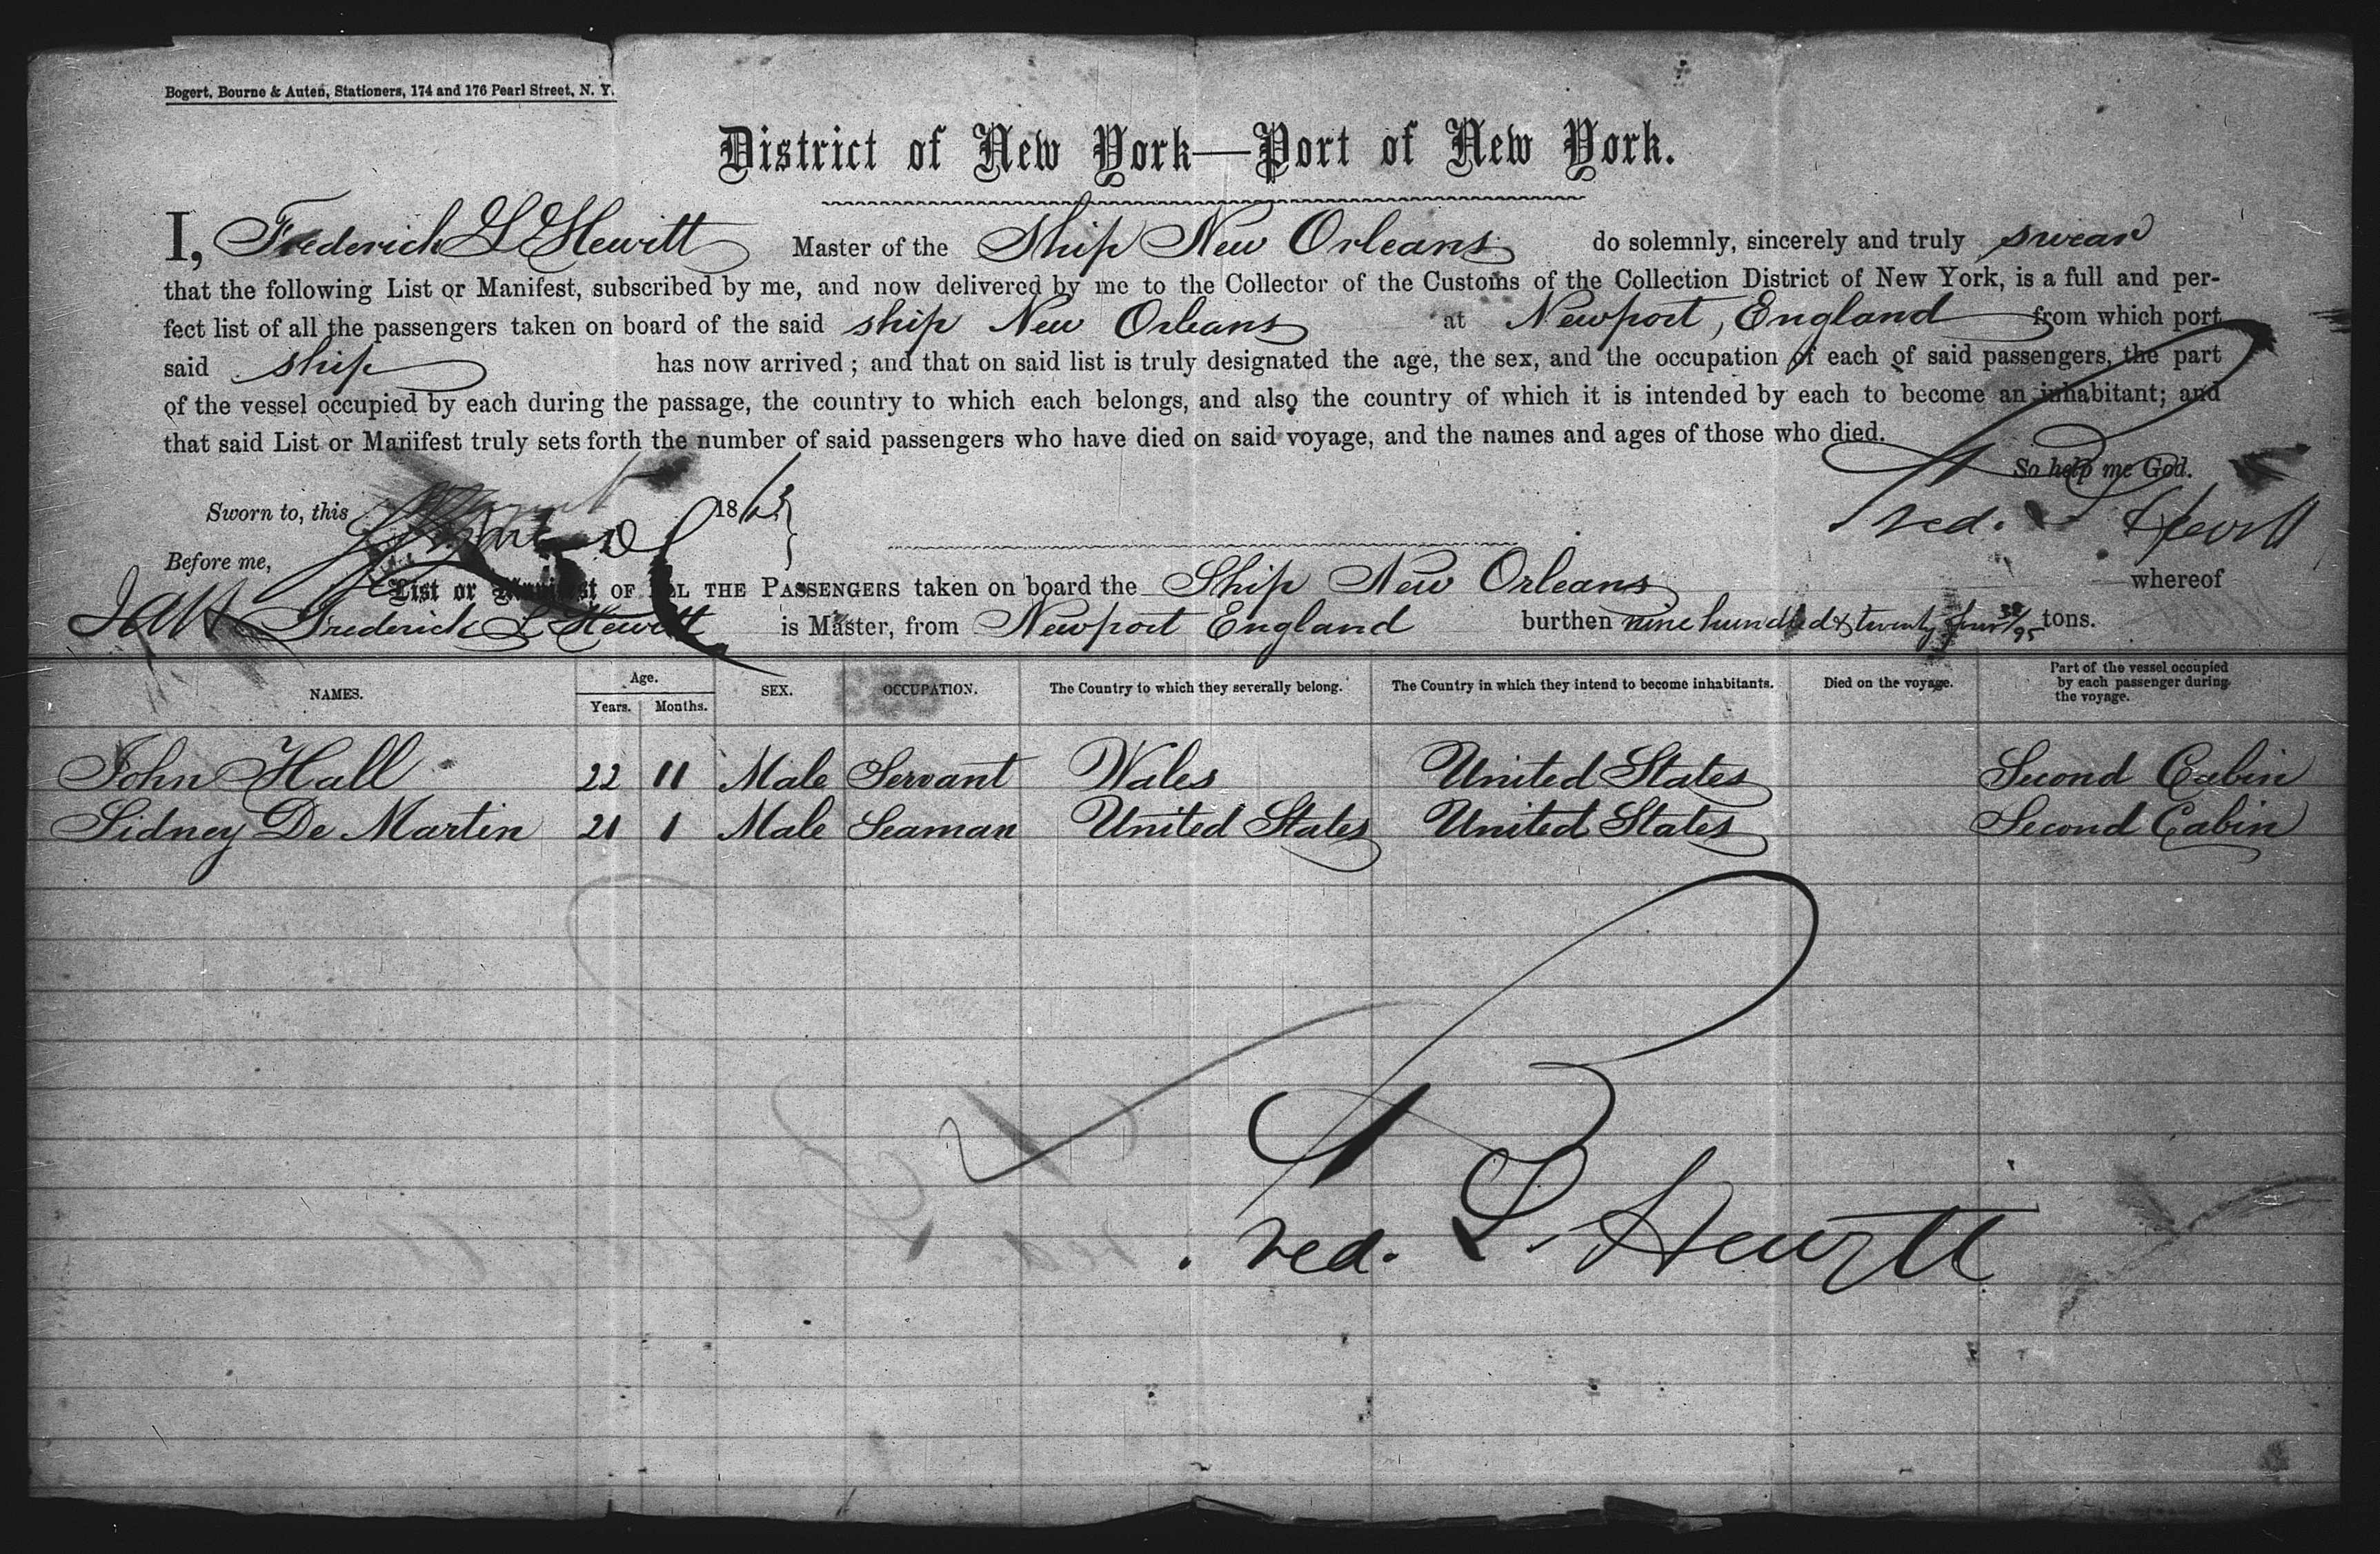 Bogert, Bourne & Auten, Stationers, 174 and 176 Pearl Street, N. Y.
District of New York—Port of New York.
I, Frederick L Hewitt Master of the Ship New Orleans do solemnly, sincerely and truly swear
that the following List or Manifest, subscribed by me, and now delivered by me to the Collector of the Customs of the Collection District of New York, is a full and per-
fect list of all the passengers taken on board of the said ship New Orleans at Newport, England from which port
said ship has now arrived; and that on said list is truly designated the age, the sex, and the occupation of each of said passengers, the part
of the vessel occupied by each during the passage, the country to which each belongs, and also the country of which it is intended by each to become an inhabitant; and
that said List or Manifest truly sets forth the number of said passengers who have died on said voyage, and the names and ages of those who died.
So help me God.
Sworn to, this 1863
Fred. L Hewitt
Before me,
List or Manifest OF ALL THE PASSENGERS taken on board the Ship New Orleans whereof
Frederick L Hewitt is Master, from Newport England burthen nine hundred & twenty four 32/95 tons.
NAMES. Age. Years. Months. SEX. OCCUPATION. The Country to which they severally belong. The Country in which they intend to become inhabitants. Died on the voyage. Part of the vessel occupied by each passenger during the voyage.
John Hall 22 11 Male Servant Wales United States Second Cabin
Sidney De Martin 21 1 Male Seaman United States United States Second Cabin
Fred. L. Hewitt